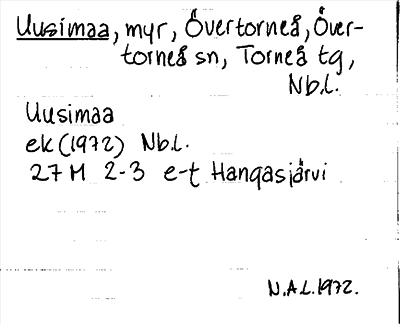 Uusimaa, myr, Övertorneå, Över-
torneå sn, Torneå tg,
Nb.l.
Uusimaa
ek (1972) Nb.l.
27 M 2-3 e-t Hangasjärvi
N.A.L. 1972.